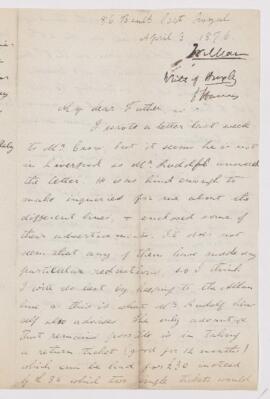 April 3 1876
My dear Father
I wrote a letter last week
to Mr. but it seems he is not
in Liverpool as Mr. Rudolph answered
the letter. He was kind enough to
make inquiries for me about the
different lines, & enclosed some of
their advertisements. It does not
seem that any of them have made any
particular reduction, so I think
I will do best by keeping to the Allan
line & this is what Mr. Rudolf him
self also advises. The only alternative
that remains possible is in taking
a return ticket (good for 12 months)
which can be had for £30 instead
of £36 which two single tickets would